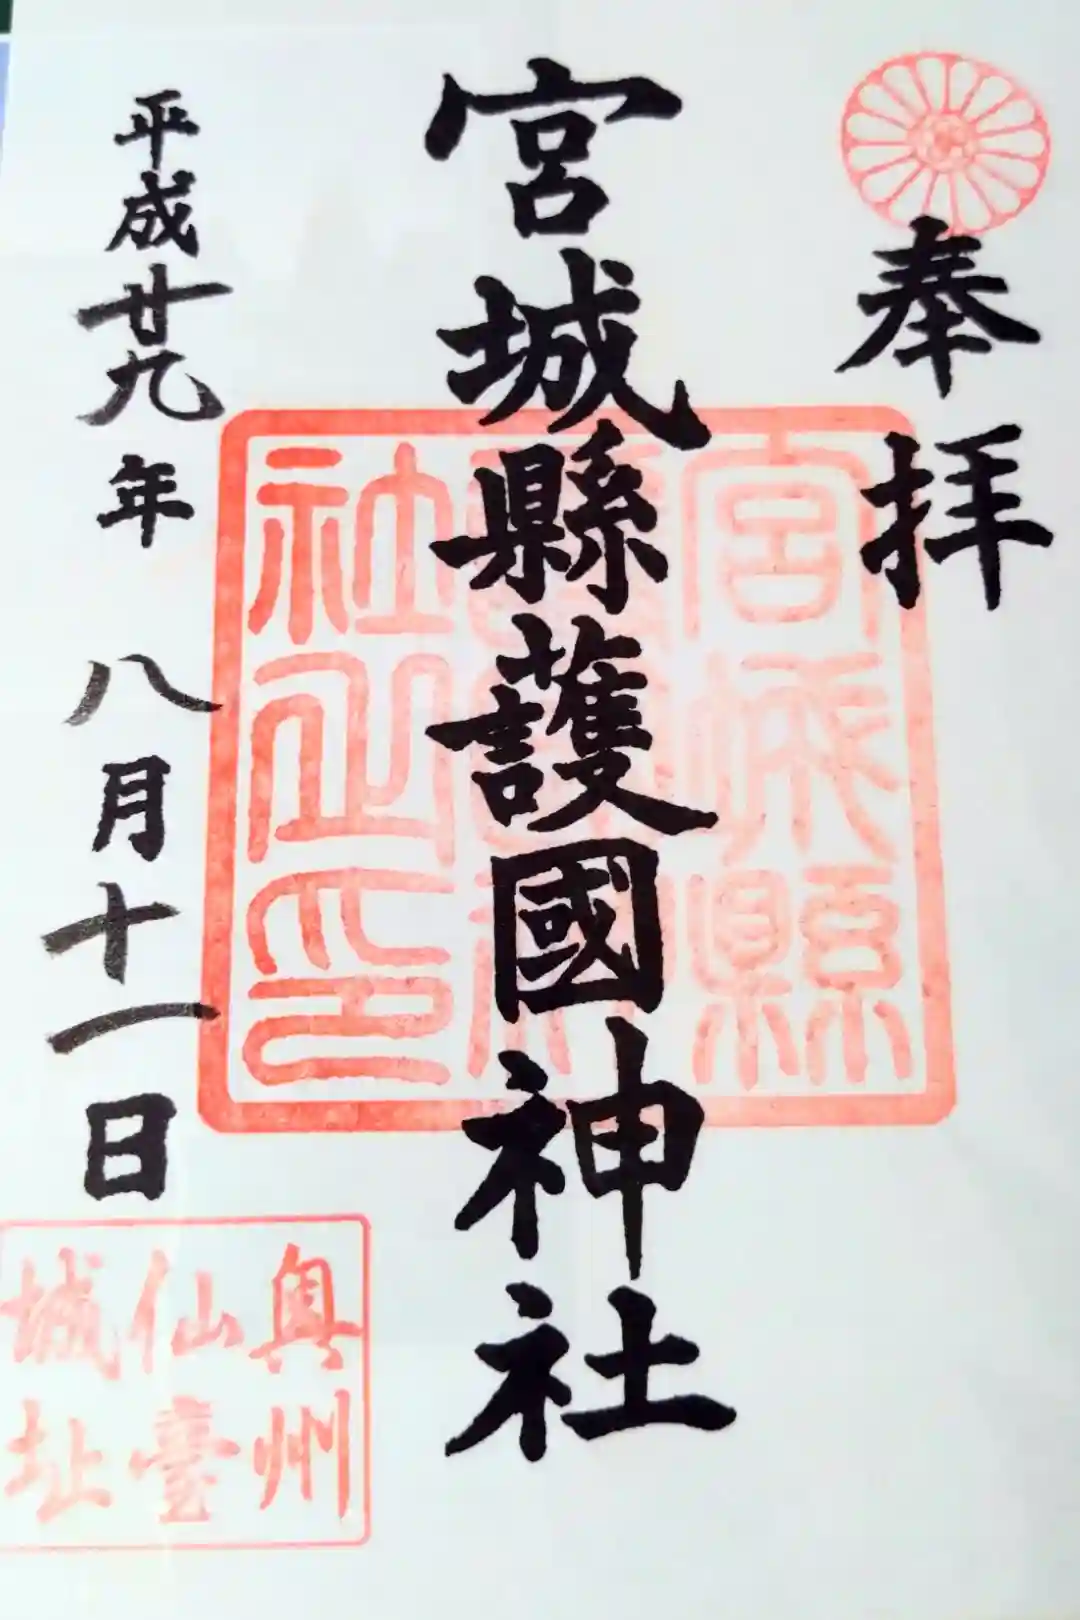 奉拝
宮城縣護國神社
平成廿九年八月十一日
宮城縣
社之印
奥州
仙臺
城址